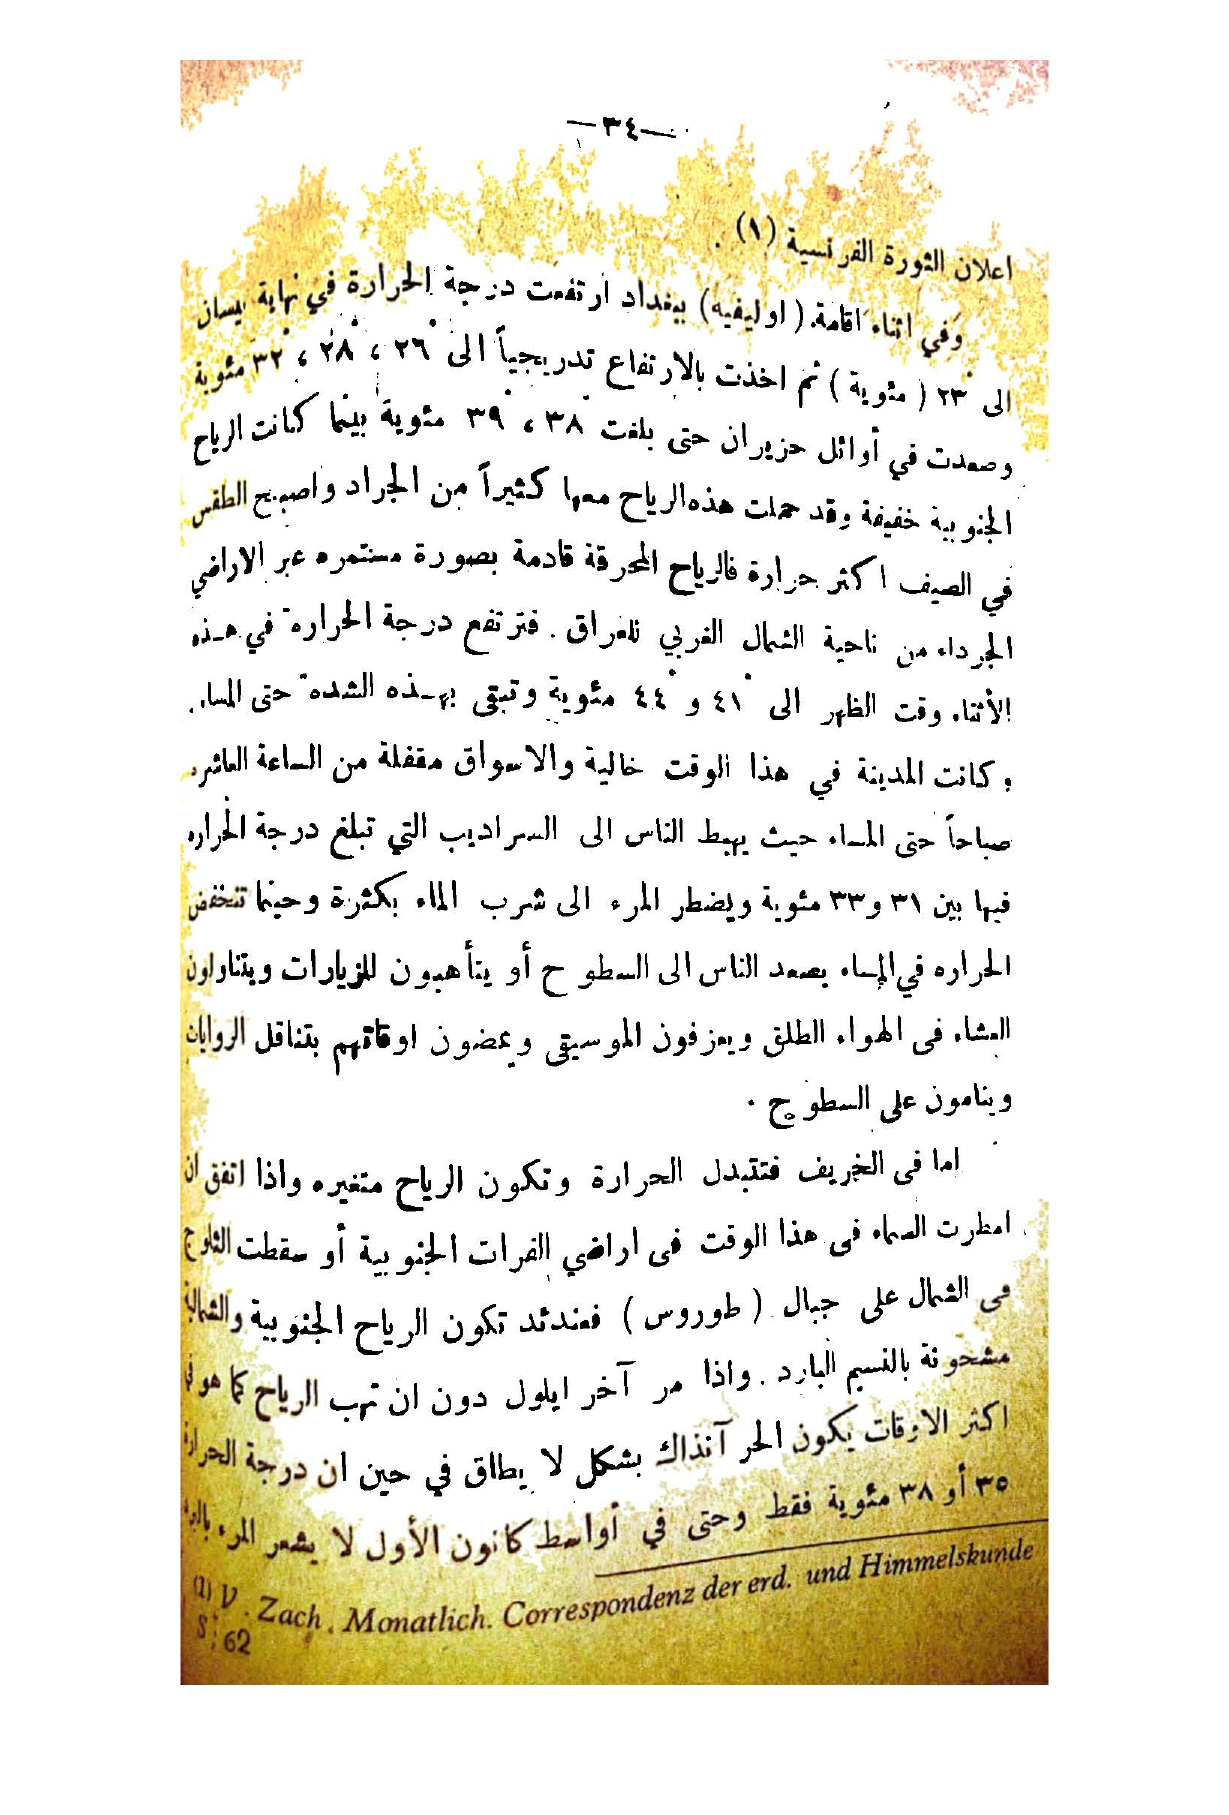 —٣٤—
اعلان الثورة الفرنسية (١) .
وفي اثناء اقامة (اوليفيه) ببغداد ارتفعت درجة الحرارة في نهاية نيسان
الى ٢٣ْ (مئوية) ثم اخذت بالارتفاع تدريجياً الى ٢٦ْ ، ٢٨ْ ، ٣٢ْ مئوية
وصعدت في أوائل حزيران حتى بلغت ٣٨ْ ، ٣٩ْ مئوية بينما كانت الرياح
الجنوبية خفيفة وقد حملت هذه الرياح معها كثيراً من الجراد واصبح الطقس
في الصيف اكثر حرارة فالرياح المحرقة قادمة بصورة مستمره عبر الاراضي
الجرداء من ناحية الشمال الغربي للعراق . فترتفع درجة الحرارة في هذه
الأثناء وقت الظهر الى ٤١ْ و ٤٤ْ مئوية وتبقى بهذه الشده حتى المساء .
وكانت المدينة في هذا الوقت خالية والاسواق مقفلة من الساعة العاشره
صباحاً حتى المساء حيث يهبط الناس الى السراديب التي تبلغ درجة الحراره
فيها بين ٣١ و٣٣ مئوية ويضطر المرء الى شرب الماء بكثرة وحينما تنخفض
الحراره في المساء يصعد الناس الى السطوح أو يتأهبون للزيارات ويتناولون
العشاء فى الهواء الطلق ويعزفون الموسيقى ويمضون اوقاتهم بتناقل الروايات
وينامون على السطوح .
اما فى الخريف فتتبدل الحرارة وتكون الرياح متغيره واذا اتفق ان
امطرت السماء فى هذا الوقت فى اراضي الفرات الجنوبية أو سقطت الثلوج
فى الشمال على جبال (طوروس) فعندئد تكون الرياح الجنوبية والشمالية
مشحونة بالنسيم البارد . واذا مر آخر ايلول دون ان تهب الرياح كما هو في
اكثر الاوقات يكون الحر آنذاك بشكل لا يطاق في حين ان درجة الحرارة
٣٥ أو ٣٨ مئوية فقط وحتى في أواسط كانون الأول لا يشعر المرء
(1) V. Zach. Monatlich. Correspondenz der erd. und Himmelskunde
S: 62